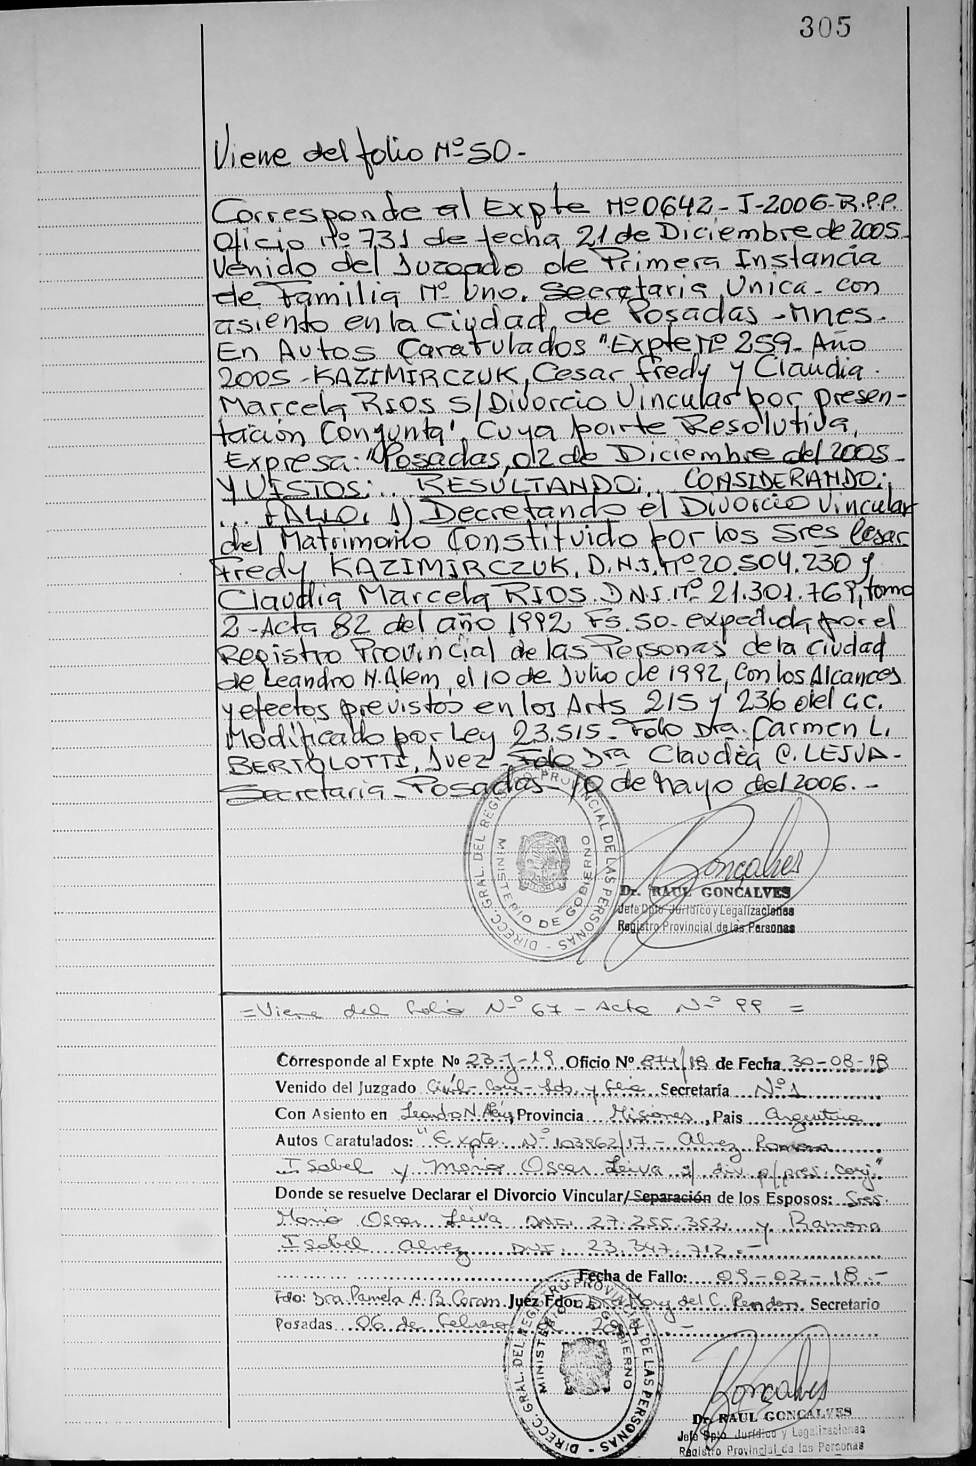 305
Viene del folio Nº 50-
Corresponde al Expte Nº 0642-J-2006-R.P.P.
Oficio Nº 731 de fecha 21 de Diciembre de 2005-
Venido del Juzgado de Primera Instancia
de Familia Nº Uno, Secretaria Unica - con
asiento en la Ciudad de Posadas - Mnes-
En Autos Caratulados "Expte Nº 259- Año
2005 - KAZIMIRCZUK, Cesar Fredy y Claudia
Marcela RIOS S/Divorcio Vincular por presen-
tación Conjunta", Cuya parte Resolutiva,
Expresa: "Posadas, 02 de Diciembre del 2005-
Y VISTOS:.. RESULTANDO:.. CONSIDERANDO:
... FALLO: 1) Decretando el Divorcio Vincular
del Matrimonio Constituido por los Sres Cesar
Fredy KAZIMIRCZUK, D.N.I. Nº 20.504.230 y
Claudia Marcela RIOS. D.N.I. Nº 21.301.769, tomo
2- Acta 82 del año 1992 Fs. 50- expedida por el
Registro Provincial de las Personas de la Ciudad
de Leandro N. Alem, el 10 de Julio de 1992, Con los Alcances
y efectos previstos en los Arts 215 y 236 del C.C.
Modificado por Ley 23.515- Fdo Dra. Carmen L.
BERTOLOTTI, Juez - Fdo Dra Claudia C. LESUA-
Secretaria - Posadas - 10 de Mayo del 2006.-
DIRECC. GRAL. DEL REGISTRO PROVINCIAL DE LAS PERSONAS -
MINISTERIO DE GOBIERNO
Goncalves
Dr. RAUL GONCALVES
Jefe Dpto Jurídico y Legalizaciones
Registro Provincial de las Personas
= Viene del folio Nº 67 - Acta Nº PP =
Corresponde al Expte Nº 23-J-19 Oficio Nº 874/18 de Fecha 30-08-18
Venido del Juzgado Civil- Com - Lab. y Flia Secretaría Nº 1
Con Asiento en Leandro N. Alem, Provincia Misiones, Pais Argentina
Autos Caratulados: "Expte Nº 103962/17 - Alvez Ramona
Isabel y Mario Oscar Leiva s/ div p/pres. conj."
Donde se resuelve Declarar el Divorcio Vincular/Separación de los Esposos: Sres.
Mario Oscar Leiva DNI: 27.255.352 y Ramona
Isabel Alvez DNI: 23.347.712.-
Fecha de Fallo: 09-02-18.-
Fdo: Dra Pamela A. B. Juez Fdo: Dra del C. Secretario
Posadas 06 de Febrero
DIRECC. GRAL. DEL REGISTRO PROVINCIAL DE LAS PERSONAS -
MINISTERIO DE GOBIERNO
Goncalves
Dr. RAUL GONCALVES
Jefe Dpto Jurídico y Legalizaciones
Registro Provincial de las Personas